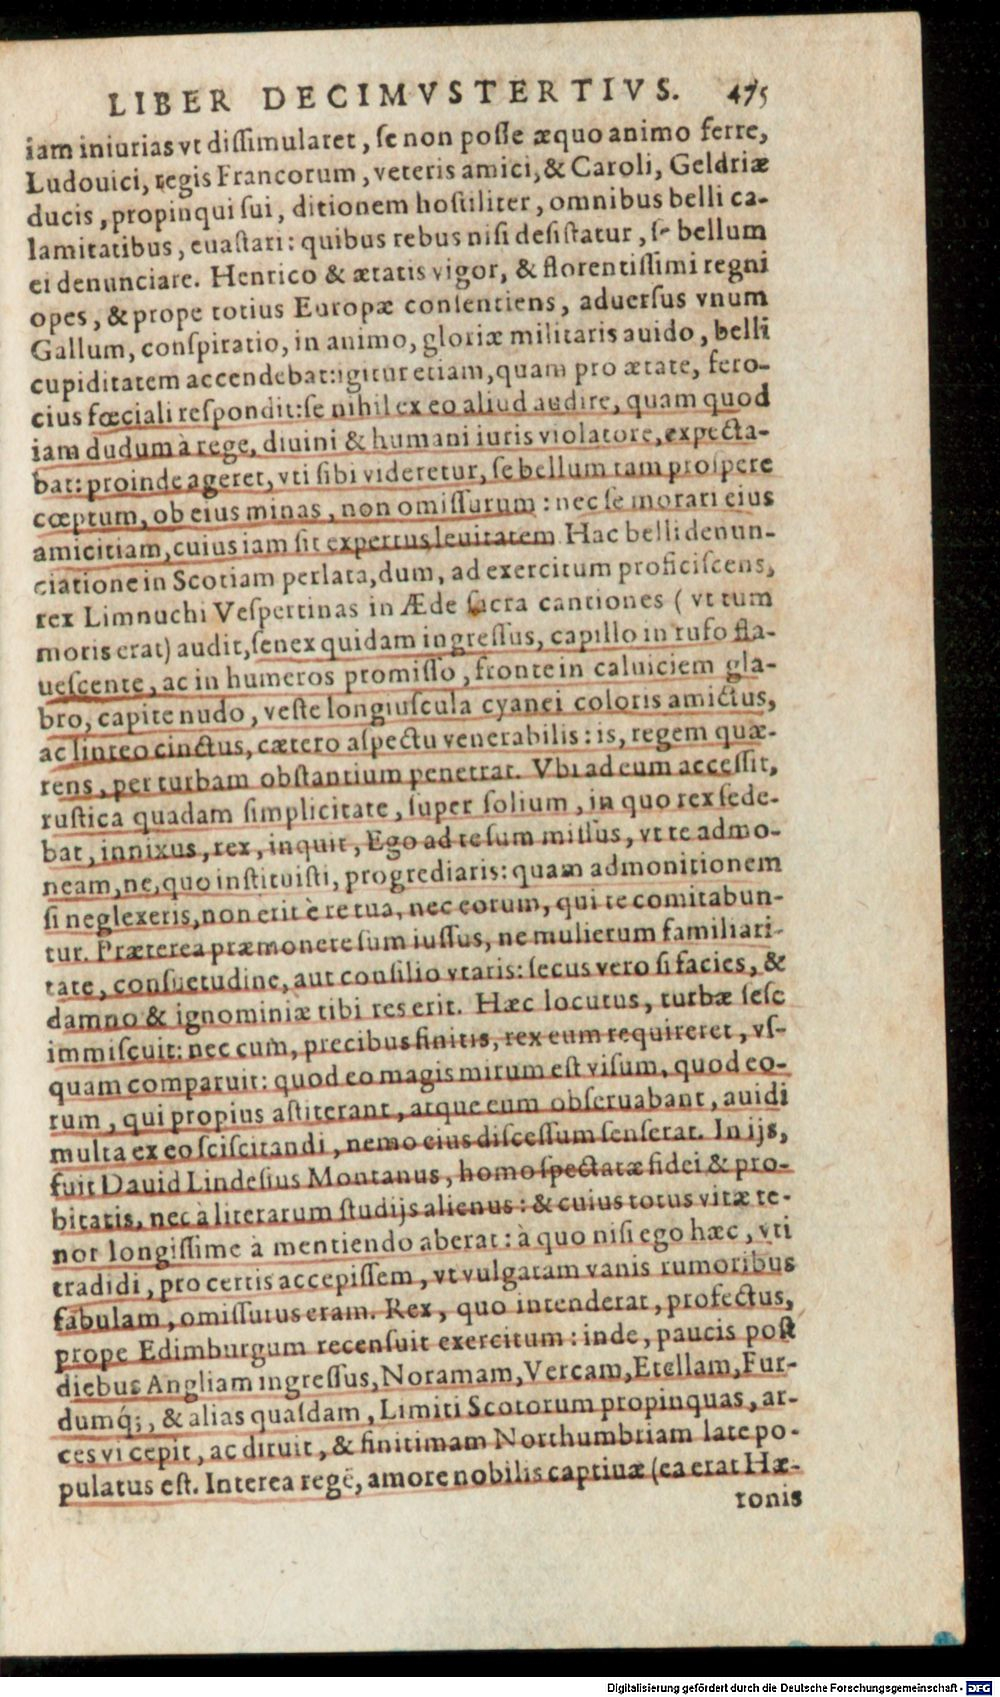 LIBER DECIMVSTERTIVS. 475
iam iniurias vt dissimularet, se non posse æquo animo ferre,
Ludouici, regis Francorum, veteris amici, & Caroli, Geldriæ
ducis, propinqui sui, ditionem hostiliter, omnibus belli ca-
lamitatibus, euastari: quibus rebus nisi desistatur, se bellum
ei denunciare. Henrico & ætatis vigor, & florentissimi regni
opes, & prope totius Europæ consentiens, aduersus vnum
Gallum, conspiratio, in animo, gloriæ militaris auido, belli
cupiditatem accendebat: igitur etiam, quam pro ætate, fero-
cius fœciali respondit: se nihil ex eo aliud audire, quam quod
iam dudum à rege, diuini & humani iuris violatore, expecta-
bat: proinde ageret, vti sibi videretur, se bellum tam prospere
cœptum, ob eius minas, non omissurum: nec se morari eius
amicitiam, cuius iam sit expertus leuitatem. Hac belli denun-
ciatione in Scotiam perlata, dum, ad exercitum proficiscens,
rex Limnuchi Vespertinas in Æde sacra cantiones (vt tum
moris erat) audit, senex quidam ingressus, capillo in rufo fla-
uescente, ac in humeros promisso, fronte in caluiciem gla-
bro, capite nudo, veste longiuscula cyanei coloris amictus,
ac linteo cinctus, cætero aspectu venerabilis: is, regem quæ-
rens, per turbam obstantium penetrat. Vbi ad eum accessit,
rustica quadam simplicitate, super solium, in quo rex sede-
bat, innixus, rex, inquit, Ego ad te sum missus, vt te admo-
neam, ne, quo instituisti, progrediaris: quam admonitionem
si neglexeris, non erit è re tua, nec eorum, qui te comitabun-
tur. Præterea præmonere sum iussus, ne mulierum familiari-
tate, consuetudine, aut consilio vtaris: secus vero si facies, &
damno & ignominiæ tibi res erit. Hæc locutus, turbæ sese
immiscuit: nec cum, precibus finitis, rex eum requireret, vs-
quam comparuit: quod eo magis mirum est visum, quod eo-
rum, qui propius astiterant, atque eum obseruabant, auidi
multa ex eo sciscitandi, nemo eius discessum senserat. In ijs,
fuit Dauid Lindesius Montanus, homo spectatæ fidei & pro-
bitatis, nec à literarum studijs alienus: & cuius totus vitæ te-
nor longissime à mentiendo aberat: à quo nisi ego hæc, vti
tradidi, pro certis accepissem, vt vulgatam vanis rumoribus
fabulam, omissurus eram. Rex, quo intenderat, profectus,
prope Edimburgum recensuit exercitum: inde, paucis post
diebus Angliam ingressus, Noramam, Vercam, Etellam, Fur-
dumq́;, & alias quasdam, Limiti Scotorum propinquas, ar-
ces vi cepit, ac diruit, & finitimam Northumbriam late po-
pulatus est. Interea regē, amore nobilis captiuæ (ea erat Hæ-
ronis
Digitalisierung gefördert durch die Deutsche Forschungsgemeinschaft - DFG